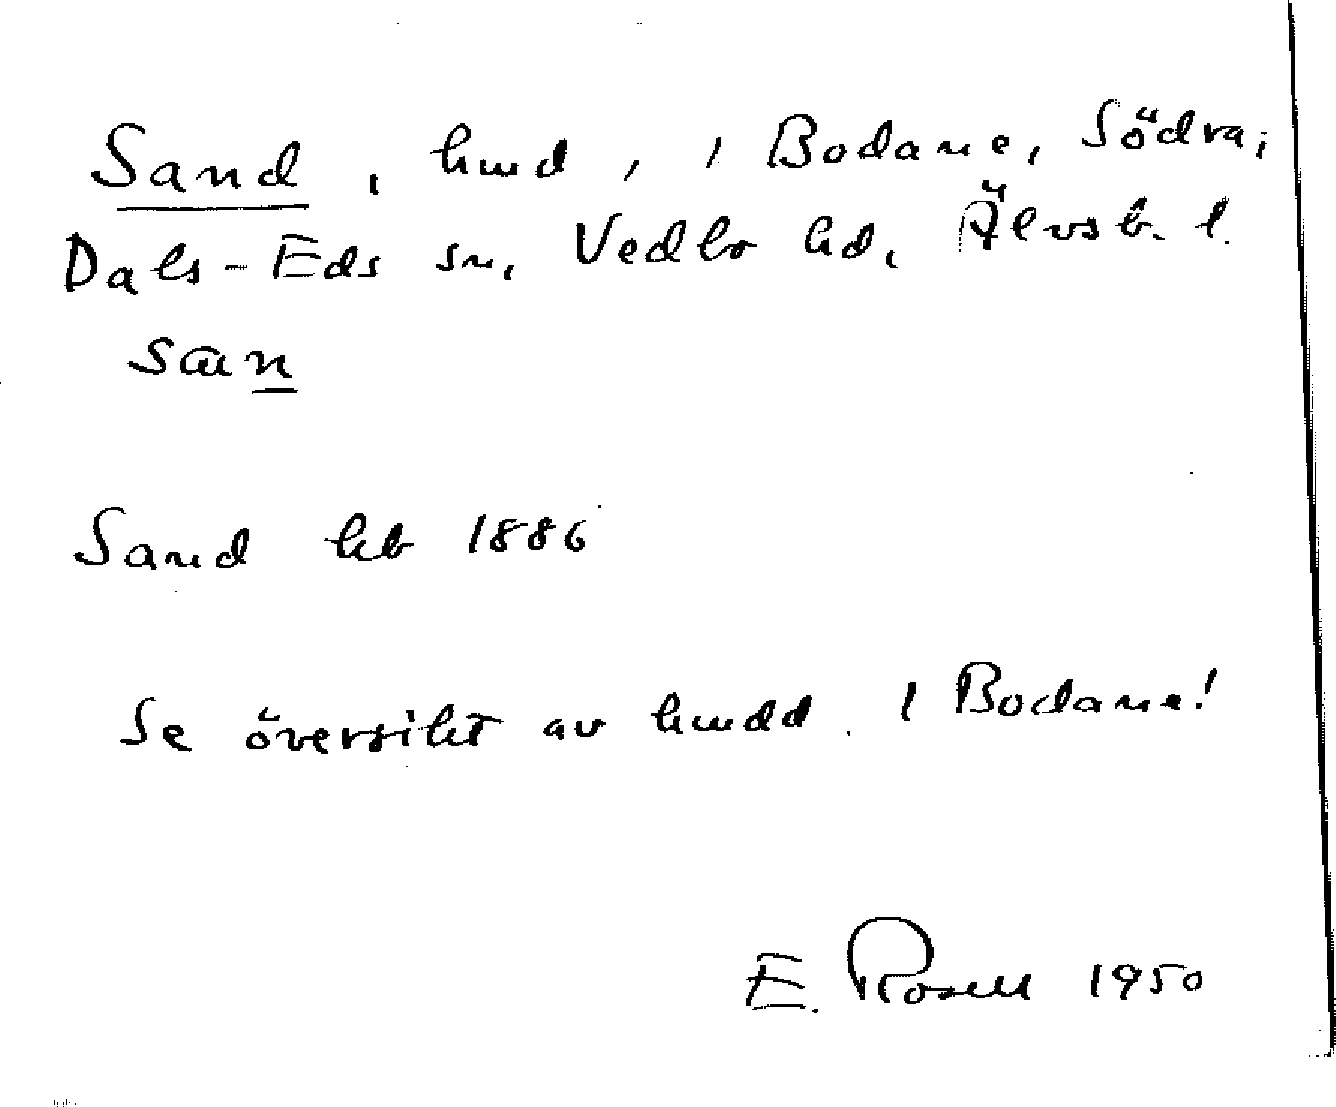 Sand, hmd, i Bodane, Södra,
Dals-Eds sn, Vedbo hd, Älvsb. l.
san
Sand hfb 1886
Se översikt av hmdd. i Bodane!
E. Rosell 1950